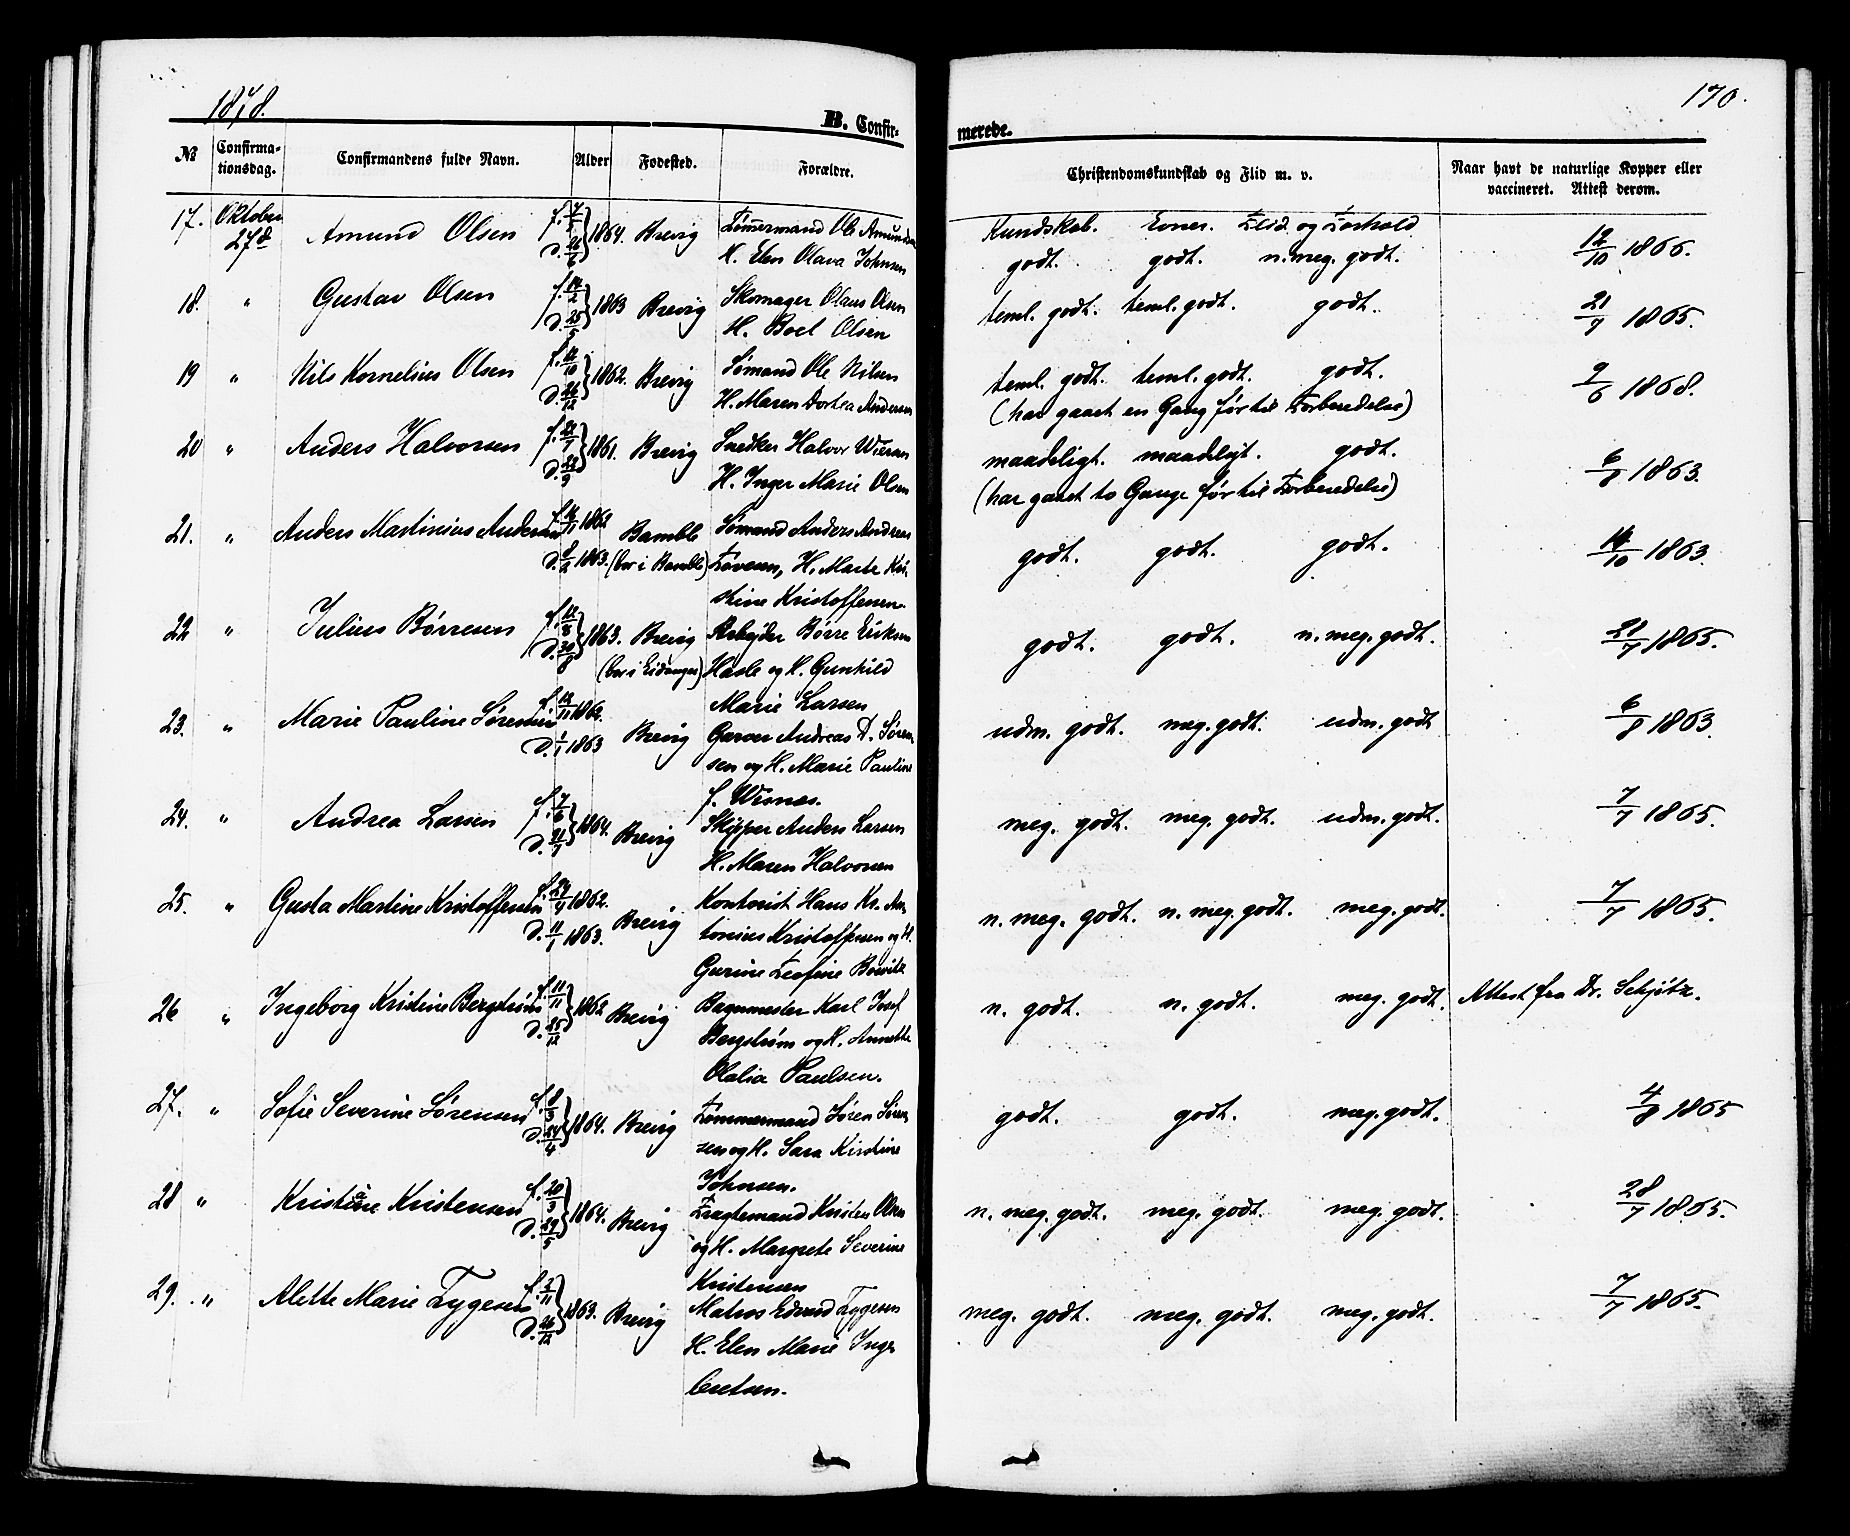 1878.
170.
B. Confir-
merede.
№
Confirma-
tionsdag.
Confirmandens fulde Navn.
Alder
Fødested.
Forældre.
Christendomskundskab og Flid m. v.
Naar havt de naturlige Kopper eller
vaccineret. Attest derom.
17. Oktober 27de Amund Olsen 1864. Brevig Tømmermand Ole Amundsen
H. Elen Olava Johnsen
Kundskab. Evner. Flid og Forhold
godt. godt. n. meg. godt. 12/10 1866.
18. " Gustav Olsen 1863 Brevig Skomager Olaus Olsen
H. Boel Olsen
teml. godt. teml. godt. godt. 21/7 1865.
19 " Nils Kornelius Olsen 1862. Brevig Sømand Ole Nilsen
H. Maren Dortea Andersen
teml. godt. teml. godt. godt. 9/6 1868.
(har gaaet en Gang før til Forberedelse)
20 " Anders Halvorsen 1861. Brevig Snedker Halvor
H. Inger Marie Olsen
maadeligt. maadeligt. godt. 6/8 1863.
(har gaaet to Gange før til Forberedelse)
21. " Anders Martinius Andersen 1862 Bamble Sømand Anders Andreas
d. 8/2 1863. (bor i Bamble) H. Marte Kri-
stine Kristoffersen.
godt. godt. godt. 14/10 1863.
22 " Julius Børresen 1863. Brevig Arbejder Børre Eriksen
(bor i Eidanger) Hasle og H. Gunhild
Marie Larsen
godt. godt. n. meg. godt. 21/7 1865.
23. " Marie Pauline Sørensen 1862.
d. 1/1 1863 Brevig Garver Andreas D. Søren-
sen og H. Marie Pauline
f. Wismas.
udm. godt. meg. godt. udm. godt 6/8 1863.
24. " Andrea Larsen f. 7/6 d. 21/7 1864. Brevig Skipper Anders Larsen
H. Maren Halvorsen
meg. godt. meg. godt. udm. godt. 7/7 1865.
25. " Gusta Martine Kristoffersen 1862.
d. 11/1 1863. Brevig Kontorist Hans Kr. An-
tonius Kristoffersen og H.
Gurine
n. meg. godt. n. meg. godt. meg. godt. 7/7 1865.
26 " Ingeborg Kristine Bergstrøm f. 11/11 d. 25/12 1862 Brevig Bagermester Karl Josef
Bergstrøm og H. Annette
Olalia Paulsen.
n. godt. n. godt. meg. godt. Attest fra Dr. Schjötz.
27. " Sofie Severine Sørensen f. 8/3 d. 24/4 1864. Brevig Tømmermand Søren Søren-
sen og H. Sara Kirstine
Johnsen.
godt. godt. meg. godt. 4/8 1865
28 " Kristiane Kristensen f. 20/3 d. 29/5 1864. Brevig Fragtemand Kristen Olsen
og H. Margrete Severine
Kristensen
n. meg. godt. meg. godt. meg. godt. 28/7 1865.
29. " Alette Marie Tygesen f. 2/11 d. 26/12 1863. Brevig Matros Edvard Tygesen
H. Elen Marie Inge-
bretsen.
meg. godt. meg. godt. meg. godt. 7/7 1865.